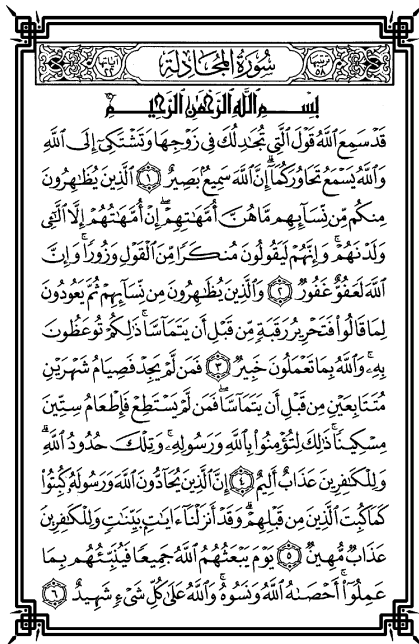 ترتيبها ٥٨ سُورَةُ المُجَادلَة آياتها ٢٢
بِسْمِ اللَّهِ الرَّحْمَٰنِ الرَّحِيمِ
قَدْ سَمِعَ اللَّهُ قَوْلَ الَّتِي تُجَٰدِلُكَ فِي زَوْجِهَا وَتَشْتَكِي إِلَى اللَّهِ
وَاللَّهُ يَسْمَعُ تَحَاوُرَكُمَا ۚ إِنَّ اللَّهَ سَمِيعٌ بَصِيرٌ ١ الَّذِينَ يُظَٰهِرُونَ
مِنكُم مِّن نِّسَآئِهِم مَّا هُنَّ أُمَّهَٰتِهِمْ ۖ إِنْ أُمَّهَٰتُهُمْ إِلَّا الَّٰٓـِٔي
وَلَدْنَهُمْ ۚ وَإِنَّهُمْ لَيَقُولُونَ مُنكَرًا مِّنَ الْقَوْلِ وَزُورًا ۚ وَإِنَّ
اللَّهَ لَعَفُوٌّ غَفُورٌ ٢ وَالَّذِينَ يُظَٰهِرُونَ مِن نِّسَآئِهِمْ ثُمَّ يَعُودُونَ
لِمَا قَالُوا۟ فَتَحْرِيرُ رَقَبَةٍ مِّن قَبْلِ أَن يَتَمَآسَّا ۚ ذَٰلِكُمْ تُوعَظُونَ
بِهِۦ ۚ وَاللَّهُ بِمَا تَعْمَلُونَ خَبِيرٌ ٣ فَمَن لَّمْ يَجِدْ فَصِيَامُ شَهْرَيْنِ
مُتَتَابِعَيْنِ مِن قَبْلِ أَن يَتَمَآسَّا ۖ فَمَن لَّمْ يَسْتَطِعْ فَإِطْعَامُ سِتِّينَ
مِسْكِينًا ۚ ذَٰلِكَ لِتُؤْمِنُوا۟ بِاللَّهِ وَرَسُولِهِۦ ۚ وَتِلْكَ حُدُودُ اللَّهِ ۗ
وَلِلْكَٰفِرِينَ عَذَابٌ أَلِيمٌ ٤ إِنَّ الَّذِينَ يُحَآدُّونَ اللَّهَ وَرَسُولَهُۥ كُبِتُوا۟
كَمَا كُبِتَ الَّذِينَ مِن قَبْلِهِمْ ۚ وَقَدْ أَنزَلْنَآ ءَايَٰتٍۭ بَيِّنَٰتٍ ۚ وَلِلْكَٰفِرِينَ
عَذَابٌ مُّهِينٌ ٥ يَوْمَ يَبْعَثُهُمُ اللَّهُ جَمِيعًا فَيُنَبِّئُهُم بِمَا
عَمِلُوٓا۟ ۚ أَحْصَىٰهُ اللَّهُ وَنَسُوهُ ۚ وَاللَّهُ عَلَىٰ كُلِّ شَيْءٍ شَهِيدٌ ٦